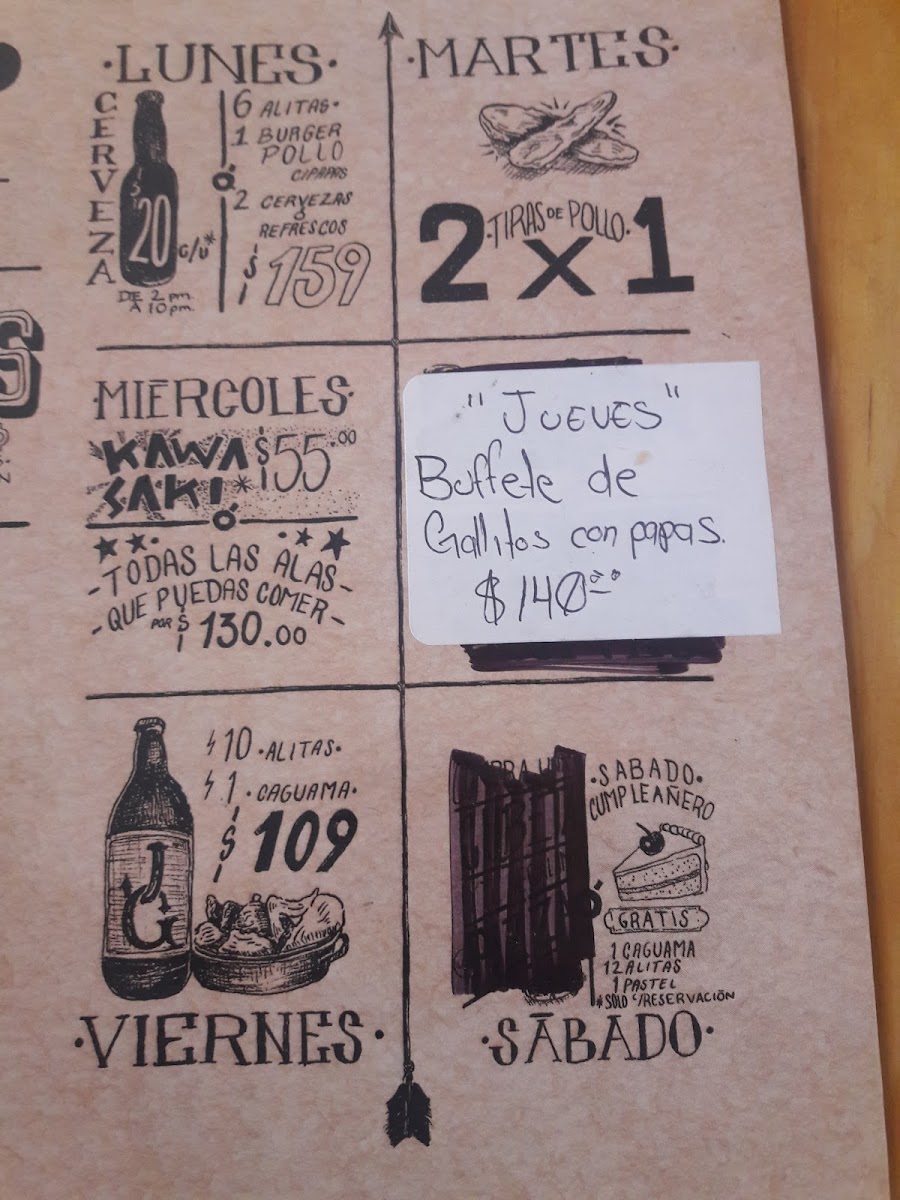 ·LUNES·
CERVEZA
$20
C/U*
DE 2 pm.
A 10 pm.
Ó
6 ALITAS·
1 BURGER
POLLO
C/PAPAS
2 CERVEZAS
Ó
REFRESCOS
$159
·MARTES·
·TIRAS DE POLLO·
2 x 1
MIÉRCOLES
KAWA
SAKI*
$55.00
Ó
-TODAS LAS ALAS-
-QUE PUEDAS COMER-
POR $130.00
"JUEVES"
Buffete de
Gallitos con papas.
$140.00
10 ·ALITAS·
1 ·CAGUAMA·
$109
JG
·VIERNES·
·SABADO·
CUMPLEAÑERO
Ó
GRATIS
1 CAGUAMA
12 ALITAS
1 PASTEL
*SOLO C/RESERVACIÓN
·SÁBADO·